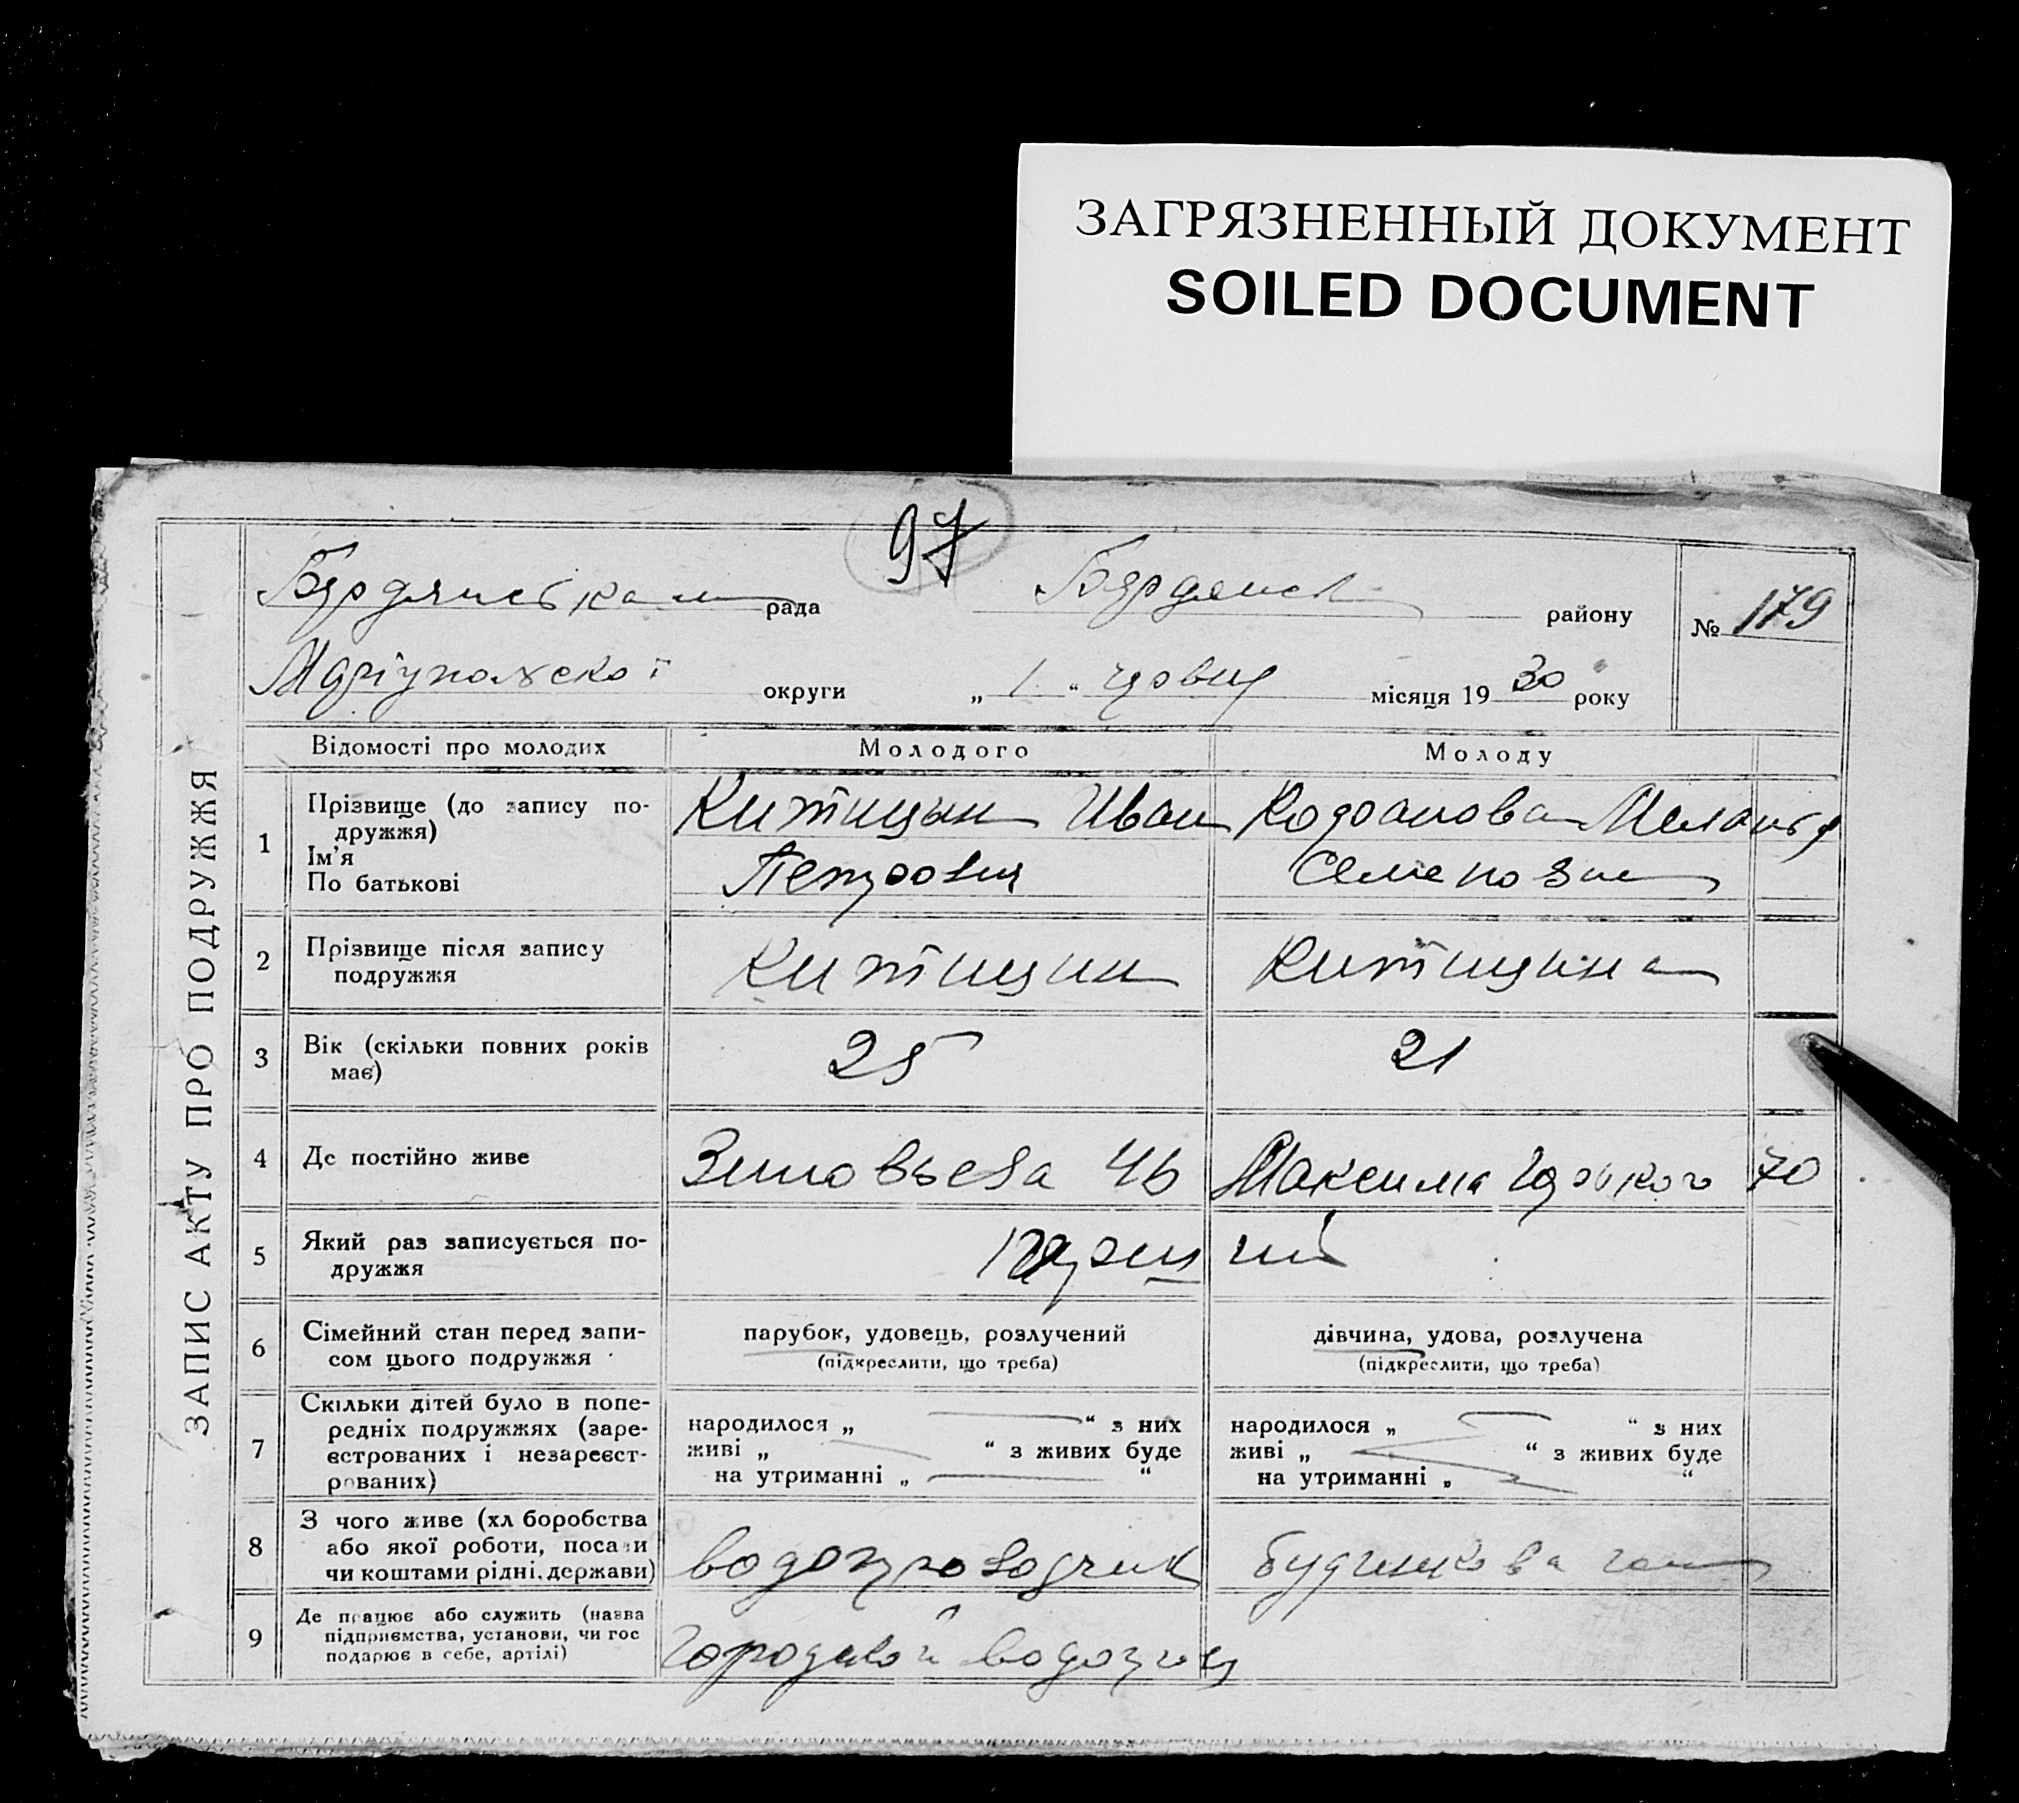 ЗАГРЯЗНЕННЫЙ ДОКУМЕНТ
SOILED DOCUMENT
97
Бердянська рада Бердянськ району № 179
Маріупольскої округи „ 1 “ місяця 19 30 року
ЗАПИС АКТУ ПРО ПОДРУЖЖЯ
Відомості про молодих Молодого Молоду
1 Прізвище (до запису по-
дружжя)
Ім'я
По батькові
Китицын Иван
Петрович
Мелания
Семеновна
2 Прізвище після запису
подружжя
Китицин Китицина
3 Вік (скільки повних років
має)
25 21
4 Де постійно живе Зиновьева 46 Максима Горького 70
5 Який раз записується по-
дружжя
6 Сімейний стан перед запи-
сом цього подружжя
парубок, удовець, розлучений
(підкреслити, що треба)
дівчина, удова, розлучена
(підкреслити, що треба)
7 Скільки дітей було в попе-
редніх подружжях (заре-
єстрованих і незареєст-
рованих)
народилося „ “ з них
живі „ “ з живих буде
на утриманні „ “
народилося „ “ з них
живі „ “ з живих буде
на утриманні „ “
8 З чого живе (хл боробства
або якої роботи, посади
чи коштами рідні, держави)
водопроводчик
9 Де працює або служить (назва
підприємства, установи, чи гос
подарює в себе, артілі)